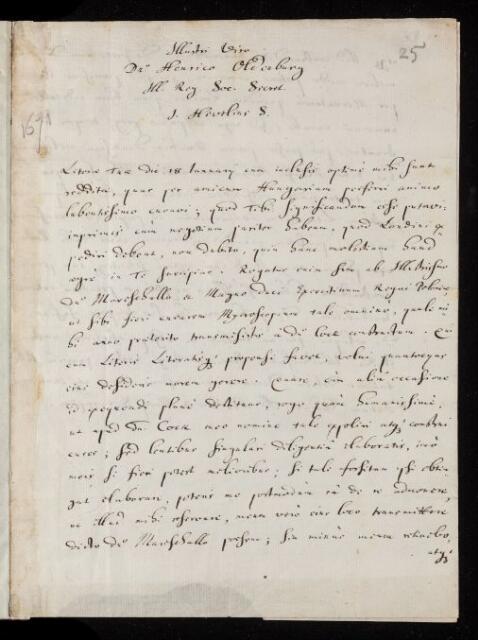 25
Illustri Viro
Dno Henrico Oldenburg
Ill. Reg Soc. Secret.
J. Hevelius S.
1671
Literae Tuae die 18 January cum inclusis optime mihi sunt
redditae, quas per amicum Hungarum perferri animo
lubentissimo curavi; quod Tibi significandum esse putavi:
inprimis cum negotium pariter habeam, quod Londini
pediri debeat, non dubito, quin hanc molestiam haud
aegre in Te suscipias. Rogatus enim sum ab Ill.
Dno Marschallo a Magno duce Exercituum Regni Poloniae,
ut sibi fieri curarem Myscroscopium tale omnino, quale
anno praeterito transmisistis a Dno Cock constructum.
cum Literis Literatisq; propensè favet, volui quantocyus
eius desiderio morem gerere. Quare, cùm aliâ occasione
id peragendi planè destituar, rogo quam humanissimè,
ut apud Dn. Cock meo nomine tale expoliri atq; construi
cures; sed lentibus singulari diligentiâ elaboratis, imò
meis si fieri potest melioribus; si tale forsitan
elaborare, poteris me postmodum eâ de re admonere,
ut illud mihi reservare, meum verò eius loco transmittere
dicto Dno Marschallo possem; sin minus meum retinebo,
atq;